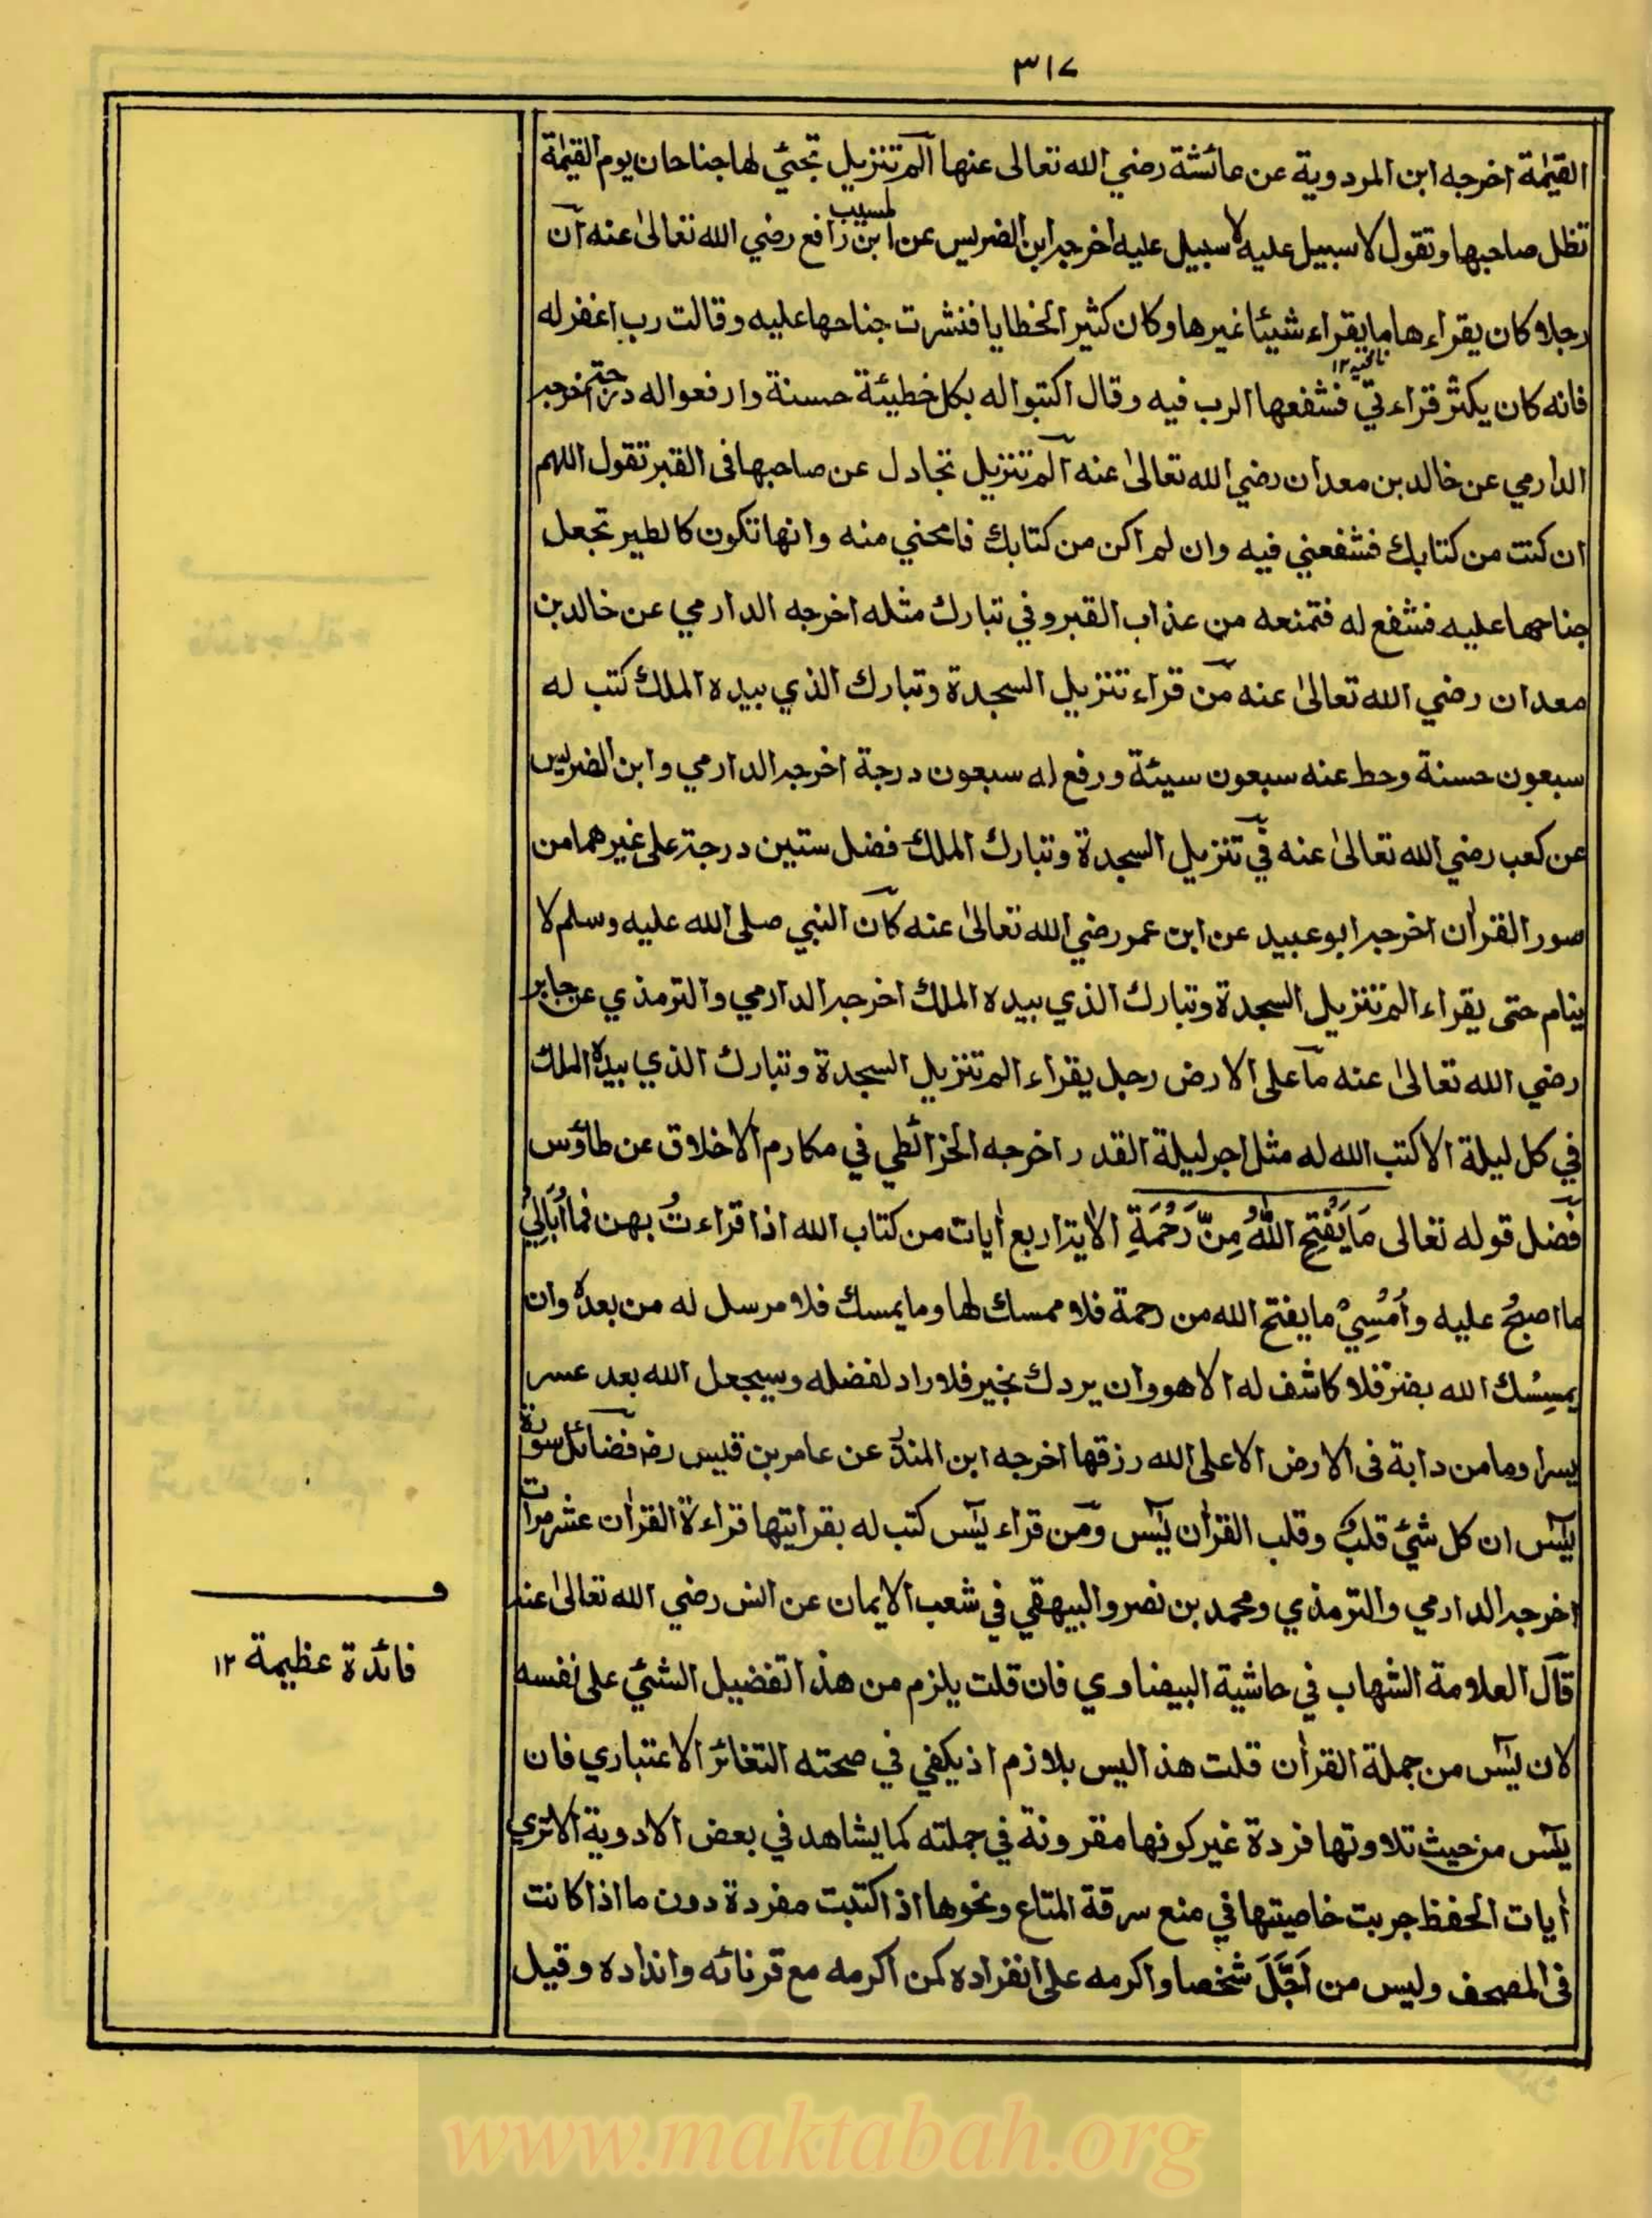 ٣١٧
القيٰمة اخرجه ابن المردوية عن عائشة رضي الله تعالى عنها آلم تنزيل تجئي لها جناحان يوم القيٰمة
تظل صاحبها وتقول لا سبيل عليه لا سبيل عليه اخرجه ابن الضريس عن المسيب ابن رافع رضي الله تعالىٰ عنه آن
رجلا كان يقراءها ما يقراء شيئا غيرها وكان كثير الخطايا فنشرت جناحها عليه وقالت رب اغفر له
فانه كان يكثر قراءتي فشفعها الرب فيه وقال اكتبوا له بكل خطيئة حسنة وارفعوا له درجة اخرجه
الدارمي عن خالد بن معدان رضي الله تعالىٰ عنه آلم تنزيل تجادل عن صاحبها فى القبر تقول اللهم
ان كنت من كتابك فشفعني فيه وان لم اكن من كتابك فامحني منه وانها تكون كالطير تجعل
جناحها عليه فشفع له فتمنعه من عذاب القبر وفي تبارك مثله اخرجه الدارمي عن خالد بن
معدان رضي الله تعالىٰ عنه مٓن قراء تنزيل السجدة وتبارك الذي بيده الملك كتب له
سبعون حسنة وحط عنه سبعون سيئة ورفع له سبعون درجة اخرجه الدارمي وابن الضريس
عن كعب رضي الله تعالىٰ عنه فٓي تنزيل السجدة وتبارك الملك فضل ستين درجة على غيرهما من
سور القراٰن اخرجه ابو عبيد عن ابن عمر رضي الله تعالىٰ عنه كآن النبي صلى الله عليه وسلم لا
ينام حتى يقراء الم تنزيل السجدة وتبارك الذي بيده الملك اخرجه الدارمي والترمذي عن جابر
رضي الله تعالىٰ عنه مآ على الارض رجل يقراء الم تنزيل السجدة وتبارك الذي بيده الملك
في كل ليلة الا كتب الله له مثل اجر ليلة القدر اخرجه الخرائطي في مكارم الاخلاق عن طاؤس
فٓضل قوله تعالى مَا يَفْتَحِ اللّٰهُ مِنْ رَحْمَةِ الاٰية اربع اٰيات من كتاب الله اذا قراءتُ بهن فما اُبَالِيْ
ما اصبحُ عليه واُمْسِيْ ما يفتح الله من رحمة فلا ممسك لها وما يمسك فلا مرسل له من بعده وان
يمسِسْك الله بضر فلا كاشف له الا هو وان يردك بخير فلا راد لفضله وسيجعل الله بعد عسر
يسرا وما من دابة فى الارض الا على الله رزقها اخرجه ابن المنذر عن عامر بن قليس رضـ فضآئل سورة
يٰسٓ ان كل شئي قلبٌ وقلب القراٰن يٰسٓ ومٓن قراء يٰسٓ كتب له بقرايتها قراءة القراٰن عشر مرات
اخرجه الدارمي والترمذي ومحمد بن نصر والبيهقي في شعب الايمان عن انس رضي الله تعالىٰ عنه
قآل العلامة الشهاب في حاشية البيضاوي فان قلت يلزم من هذا تفضيل الشئي على نفسه
لان يٰسٓ من جملة القراٰن قلت هذا ليس بلازم اذ يكفي في صحته التغائر الاعتباري فان
يٰسٓ من حيث تلاوتها فردة غير كونها مقرونة في جملته كما يشاهد في بعض الادوية الا ترى
اٰيات الحفظ جربت خاصيتها في منع سرقة المتاع ونحوها اذا كتبت مفردة دون ما اذا كانت
فى المصحف وليس من اَجَلَّ شخصا واكرمه على انفراده كمن اكرمه مع قرنائه وانداده وقيل
فـ
فائدة عظيمة ١٢
www.maktabah.org